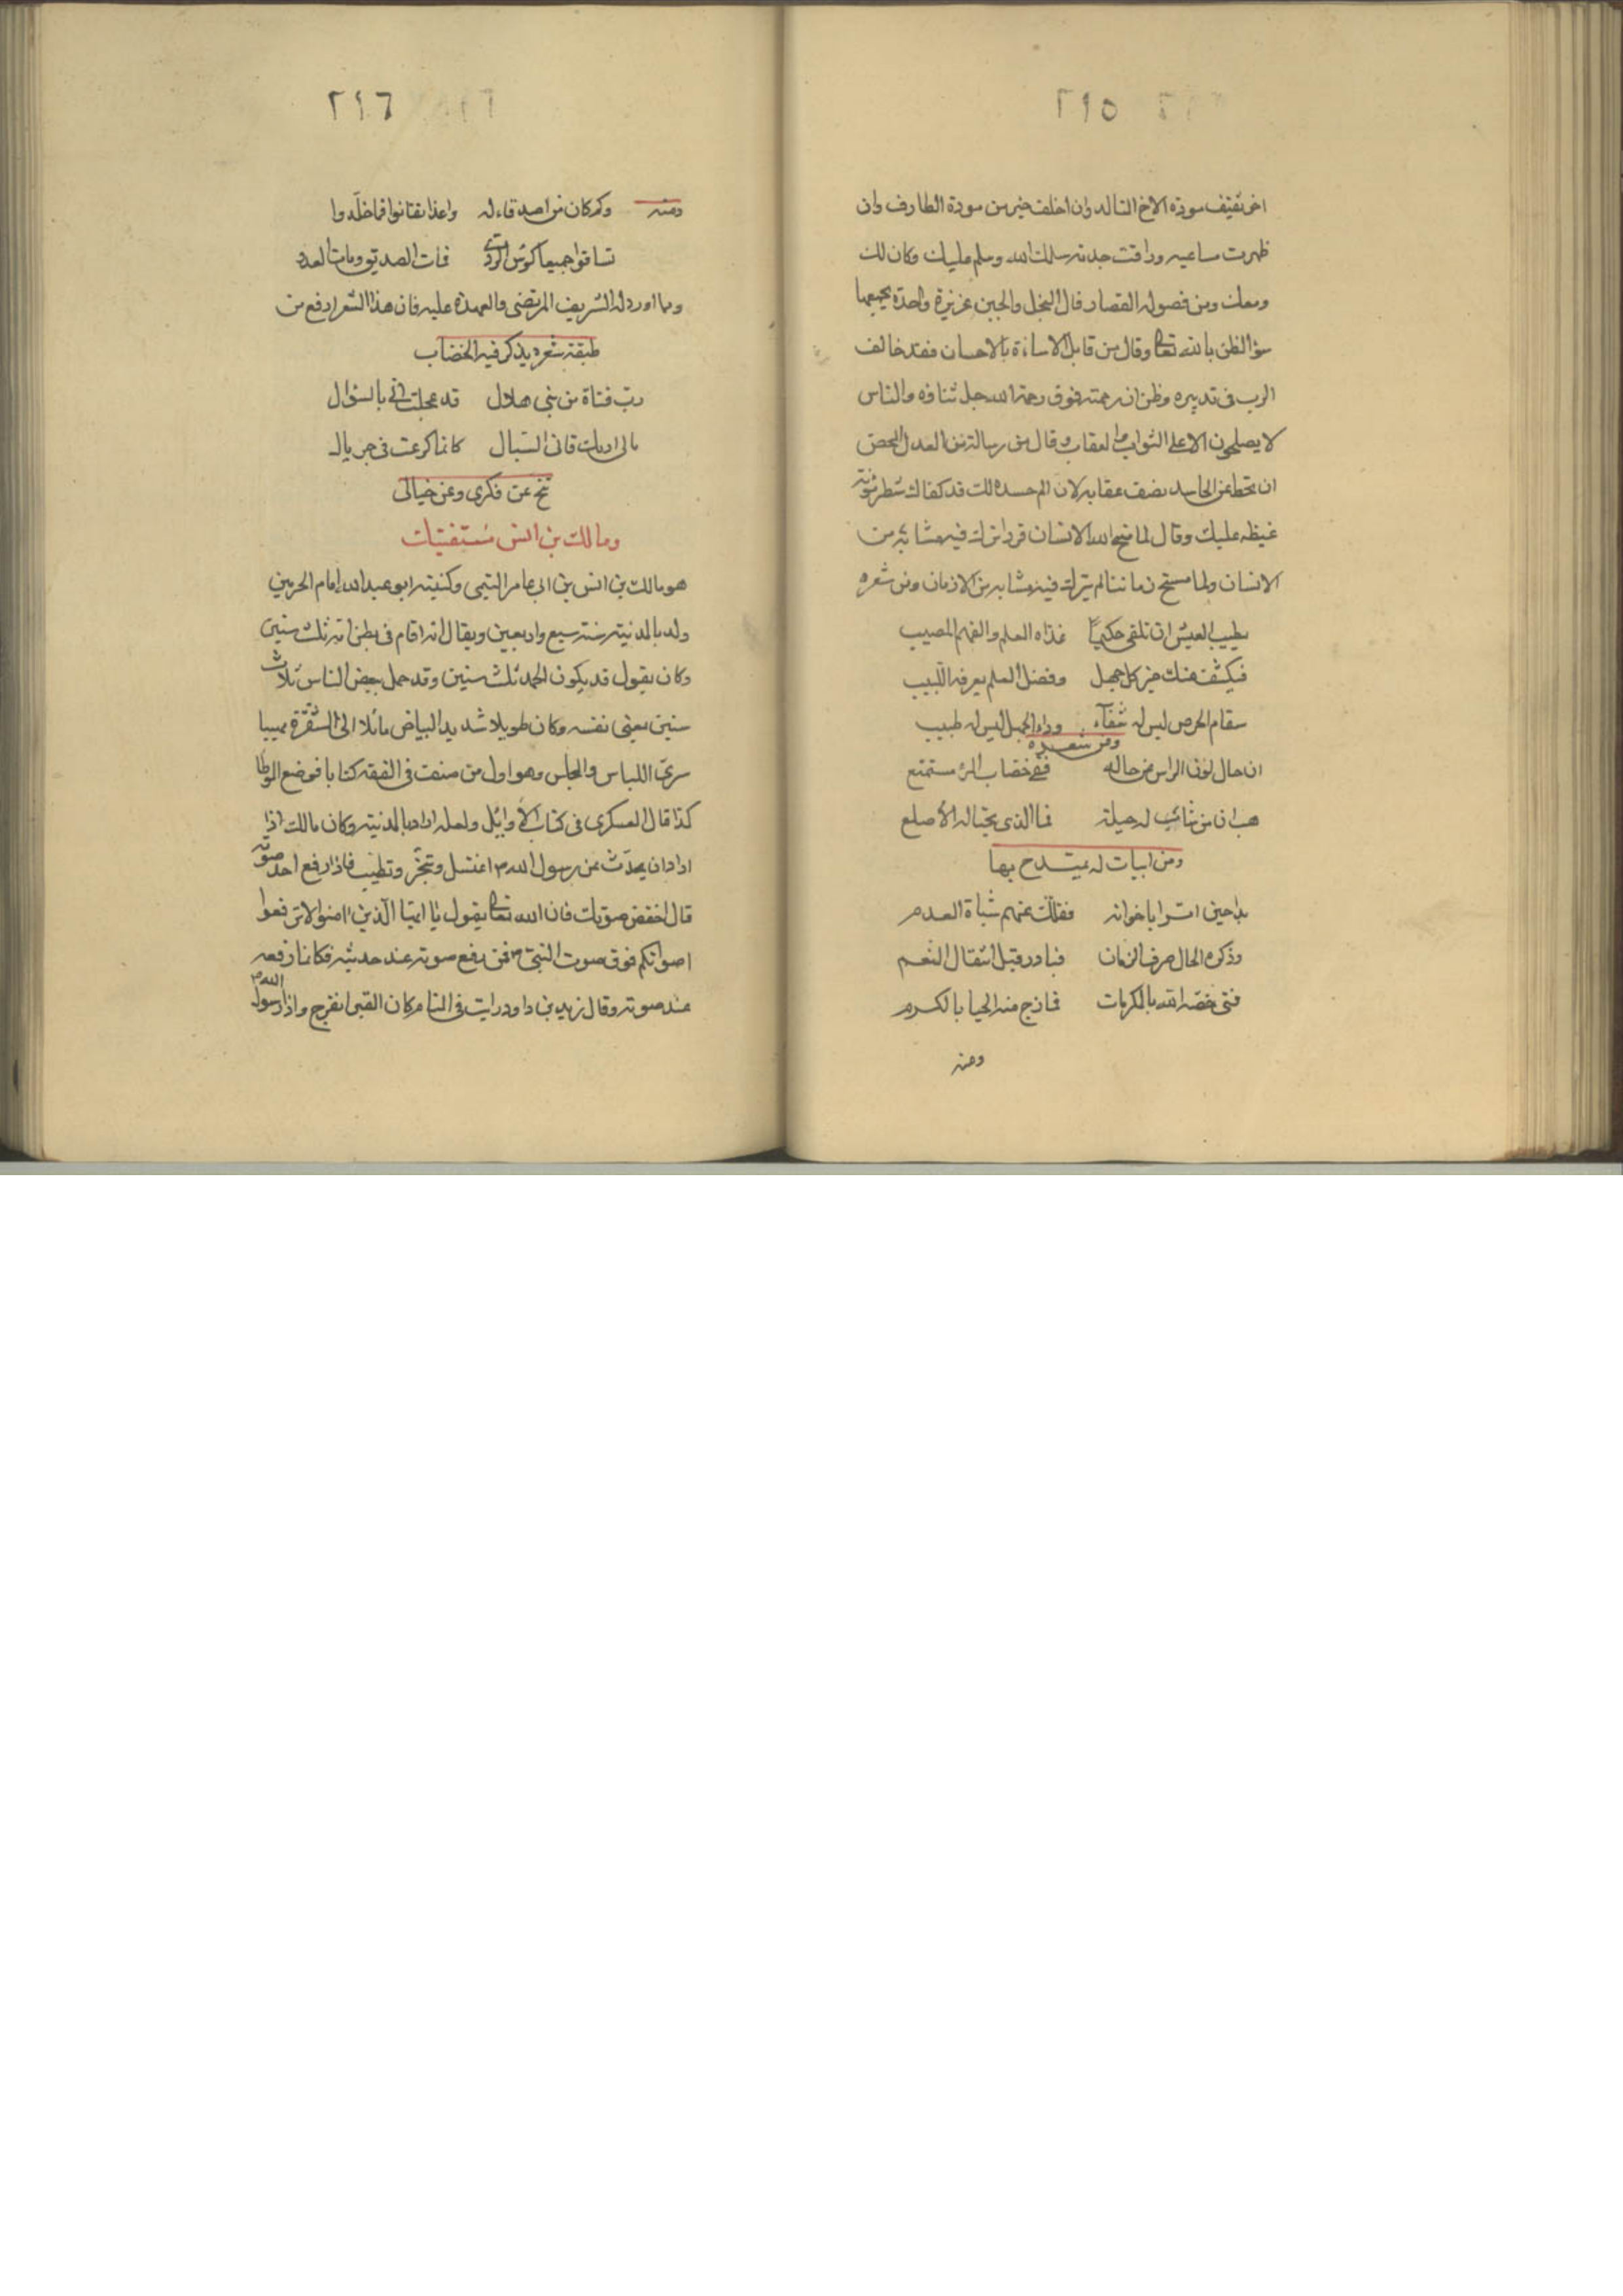 ٢٩٥
اخر تفيف مودة الاخ التالد وان اخلف خير من مودة الطارف وان
ظهرت مساعيه وراقت جدته سلمك الله وسلم عليك وكان لك
ومعك ومن فصوله القصار قال البخل والجبن غريزة واحدة يجمعها
سؤ الظن بالله تعالى وقال من قابل الاساءة بالاحسان فقد خالف
الرب فى تدبيره وظن ان رحمته فوق رحمة الله جل ثناؤه والناس
لا يصلحون الا على الثواب والعقاب وقال من رسالة من العدل المحض
ان تحط عن الحاسد نصف عقابه لان الم حسده لك قد كفاك شطر مؤنة
غيظه عليك وقال لما مسخ الله الانسان قردا ترك فيه مشابه من
الانسان ولما مسخ زماننا لم يترك فيه مشابه من الازمان ومن شعره
يطيب العيش ان تلقى حكيما غذاه العلم والفهم المصيب
فيكشف عنك حيرة كل جهل وفضل العلم يعرفه اللبيب
سقام الحرص ليس له شفاء وداء الجهل ليس له طبيب
ومن شعره
ان حال لون الراس عن حاله ففى خضاب الرأس مستمتع
هب ان من شاب له حيلة فما الذى يحتاله الأصلع
ومن ابيات له يمتدح بها
بدا حين اثرا باخوانه ففلل عنهم شباة العدم
وذكره الحال صرف الزمان فبادر قبل انتقال النعم
فتى خصه الله بالمكرمات فمازج منه الحيا بالكرم
ومنه
٢٩٦
ومنه وكم كان من اصدقاء له واعدا تفانوا فما خلدوا
تساقوا جميعا كؤس الردى فمات الصديق ومات العدو
ومما اورد له الشريف المرتضى والعهدة عليه فان هذا الشعر ارفع من
طبقة شعره يذكر فيه الخضاب
رب فتاة من بنى هلال قد عجلت الى بالسؤال
مالى اراك قانى السبال كانما كرعت فى جريال
تنح عن فكرى وعن خيالى
ومالك بن انس مستفتيات
هو مالك بن انس بن ابى عامر التيمى وكنيته ابو عبد الله امام الحرمين
ولد بالمدنية سنة سبع واربعين ويقال انه اقام فى بطن امه ثلث سنين
وكان يقول قد يكون الحمد ثلث سنين وقد حمل بعض الناس ثلاث
سنين يعنى نفسه وكان طويلا شديد البياض مائلا الى الشقرة مهيبا
سرى اللباس والمجلس وهو اول من صنف فى الفقه كتابا فوضع الموطا
كذا قال العسكرى فى كتاب الأوايل ولعله اراد بالمدنية وكان مالك اذا
اراد ان يحدث عن رسول الله ص اغتسل وتبخر وتطيب فاذا رفع احد صوته
قال اخفض صوتك فان الله تعالى يقول يا ايها الذين امنوا لا ترفعوا
اصواتكم فوق صوت النبى ص فمن رفع صوته عند حديثه فكانما رفعه
عند صوته وقال زيد بن داود رايت فى المنام كان القبر انفرج واذا رسول الله ص